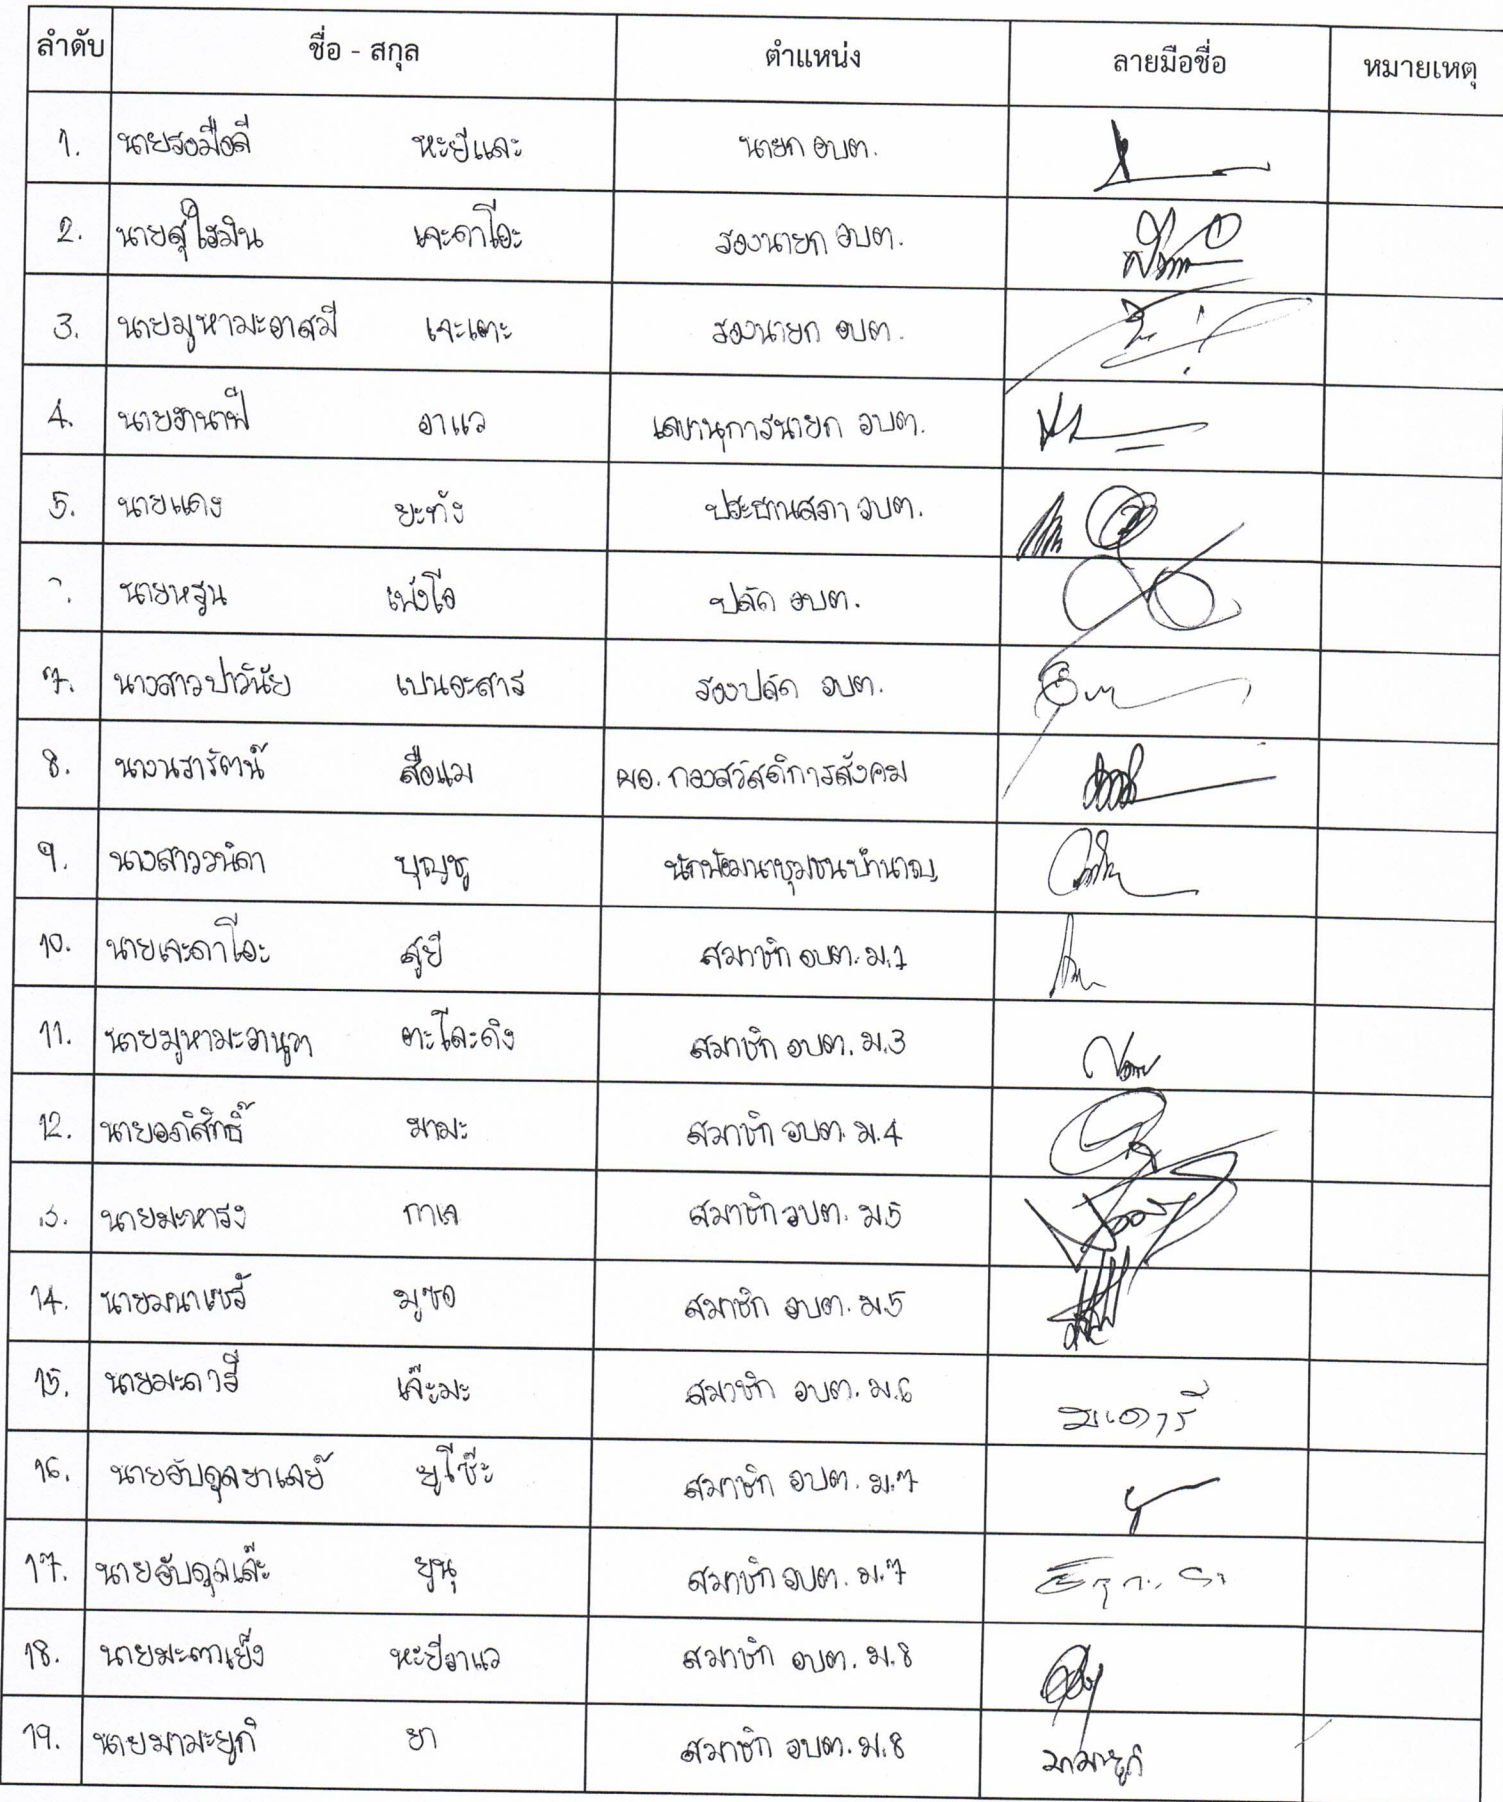 ลำดับ ชื่อ - สกุล ตำแหน่ง ลายมือชื่อ หมายเหตุ
1. นายรอมือลี หะยีและ นายก อบต.
2. นายสุไฮมิน เจะดาโอะ รองนายก อบต.
3. นายมูหามะอาสมี เจะเตะ รองนายก อบต.
4. นายฮานาฟี อาแว เลขานุการนายก อบต.
5. นายแดง ยะทัง ประธานสภา อบต.
นายหรูน เพ็งโอ ปลัด อบต.
7. นางสาวปาวีนัย เปนอะสาร รองปลัด อบต.
8. นางนรารัตน์ สือแม ผอ. กองสวัสดิการสังคม
9. นางสาววนิดา บุญชู นักพัฒนาชุมชนชำนาญ
10. นายเจะดาโอะ สูยี สมาชิก อบต. ม.1
11. นายมูหามะอานูวา ตะโละดิง สมาชิก อบต. ม.3
12. นายอภิสิทธิ์ มามะ สมาชิก อบต. ม.4
3. นายมะหารง กาเจ สมาชิก อบต. ม.5
14. นายมนาเซร์ มูซอ สมาชิก อบต. ม.5
15. นายมะดารี เจ๊ะมะ สมาชิก อบต. ม.6 มะดารี
16. นายอับดุลฮาเลย์ ยูโซ๊ะ สมาชิก อบต. ม.7
17. นายอับดุลเล๊าะ ยูนุ สมาชิก อบต. ม.7
18. นายมะตาเย็ง หะยีอาแว สมาชิก อบต. ม.8
19. นายมามะยูกี ยา สมาชิก อบต. ม.8 มามะยูกี